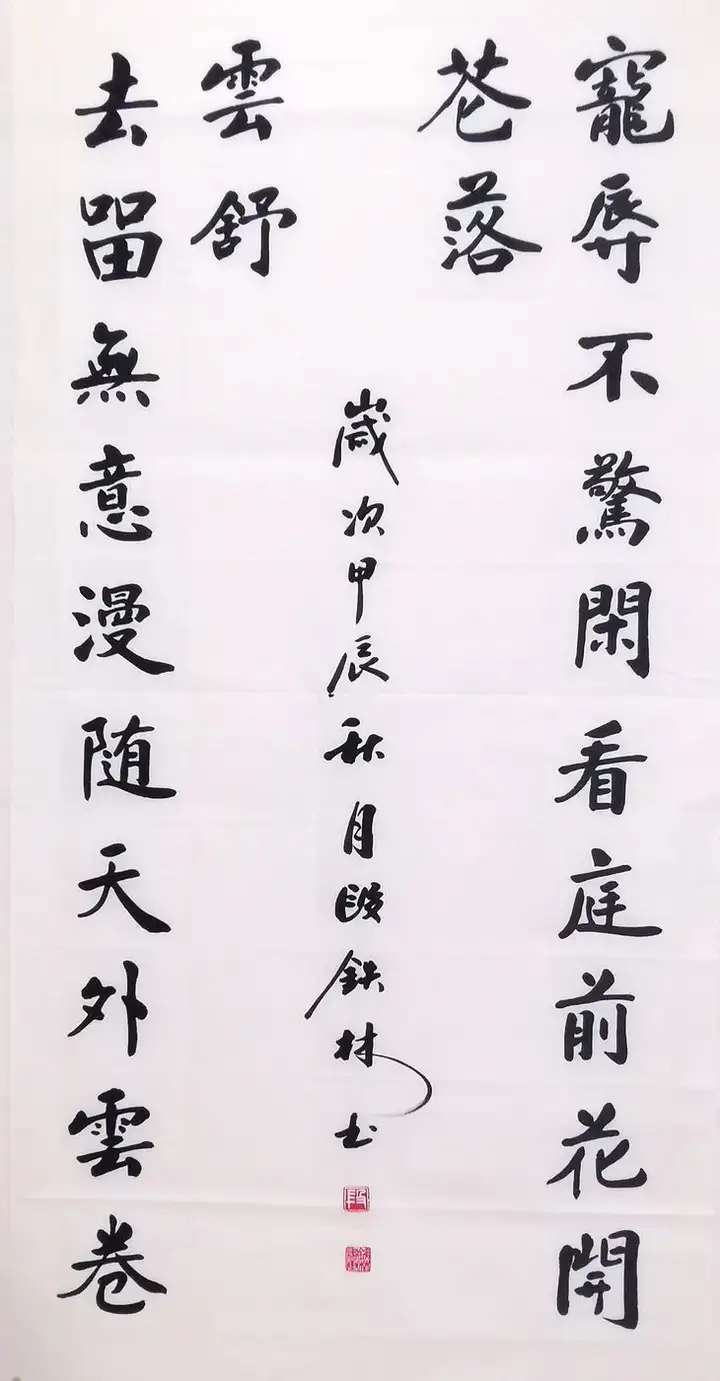 寵辱不驚閑看庭前花開
花落
去留無意漫随天外雲卷
雲舒
歲次甲辰秋月段鉄林书
段